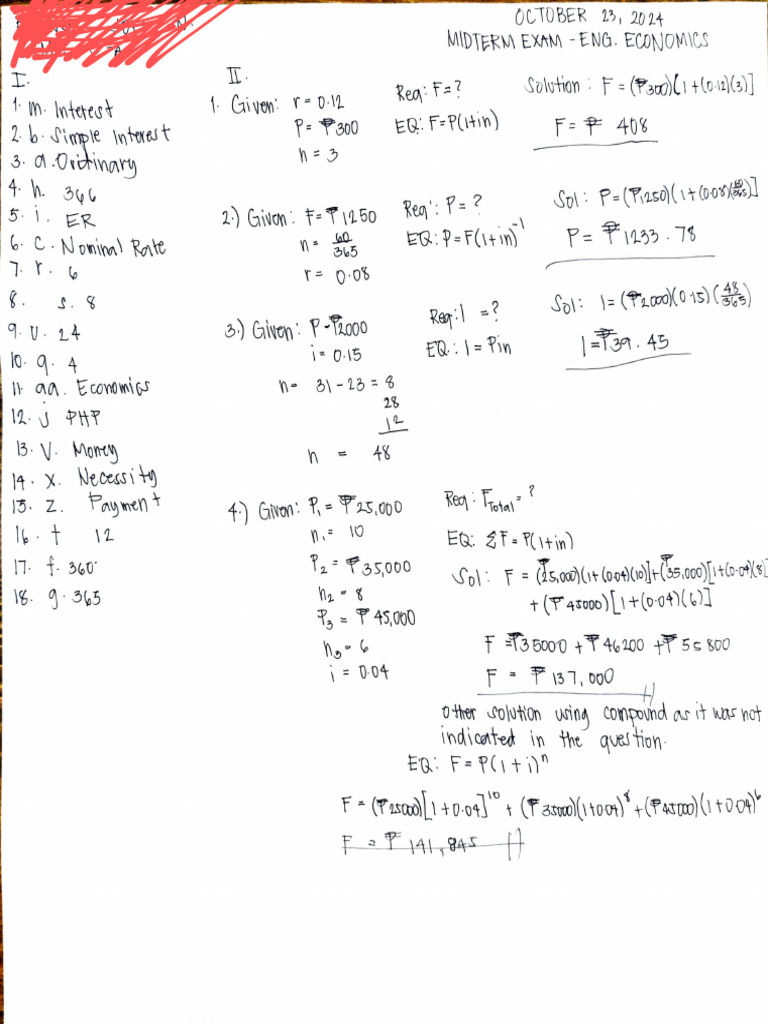 OCTOBER 23, 2024
MIDTERM EXAM - ENG. ECONOMICS
I.
1. m. Interest
2. b. Simple Interest
3. a. Ordinary
4. h. 366
5. i. ER
6. c. Nominal Rate
7. r. 6
8. s. 8
9. u. 24
10. q. 4
11. aa. Economics
12. j PHP
13. V. Money
14. x. Necessity
15. z. Payment
16. t 12
17. f. 360
18. g. 365
II.
1. Given: r = 0.12
P = ₱300
n = 3
Req: F = ?
EQ: F = P(1+in)
Solution: F = (₱300)[1+(0.12)(3)]
F = ₱ 408
2.) Given: F = ₱1250
n = 60/365
r = 0.08
Req: P = ?
EQ: P = F(1+in)^-1
Sol: P = (₱1250)(1+(0.08)(60/365)]
P = ₱1233.78
3.) Given: P - ₱2000
i = 0.15
n = 31 - 23 = 8
28
12
n = 48
Req: I = ?
EQ: I = Pin
Sol: I = (₱2000)(0.15)(48/365)
I = ₱39.45
4.) Given: P₁ = ₱25,000
n₁ = 10
P₂ = ₱35,000
n₂ = 8
P₃ = ₱45,000
n₃ = 6
i = 0.04
Req: F Total = ?
EQ: ΣF = P(1+in)
Sol: F = (₱25,000)(1+(0.04)(10)]+(₱35,000)[1+(0.04)(8]
+ (₱45000)[1+(0.04)(6)]
F = ₱35000 + ₱46200 + ₱55800
F = ₱137,000
Other solution using compound as it was not
indicated in the question.
EQ: F = P(1+i)^n
F = (₱25000)[1+0.04]^10 + (₱35000)(1+0.04)^8 + (₱45000)(1+0.04)^6
F = ₱141,845